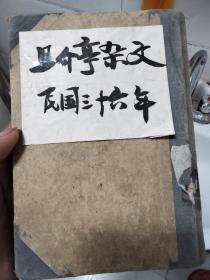 且介亭杂文
民国三十六年